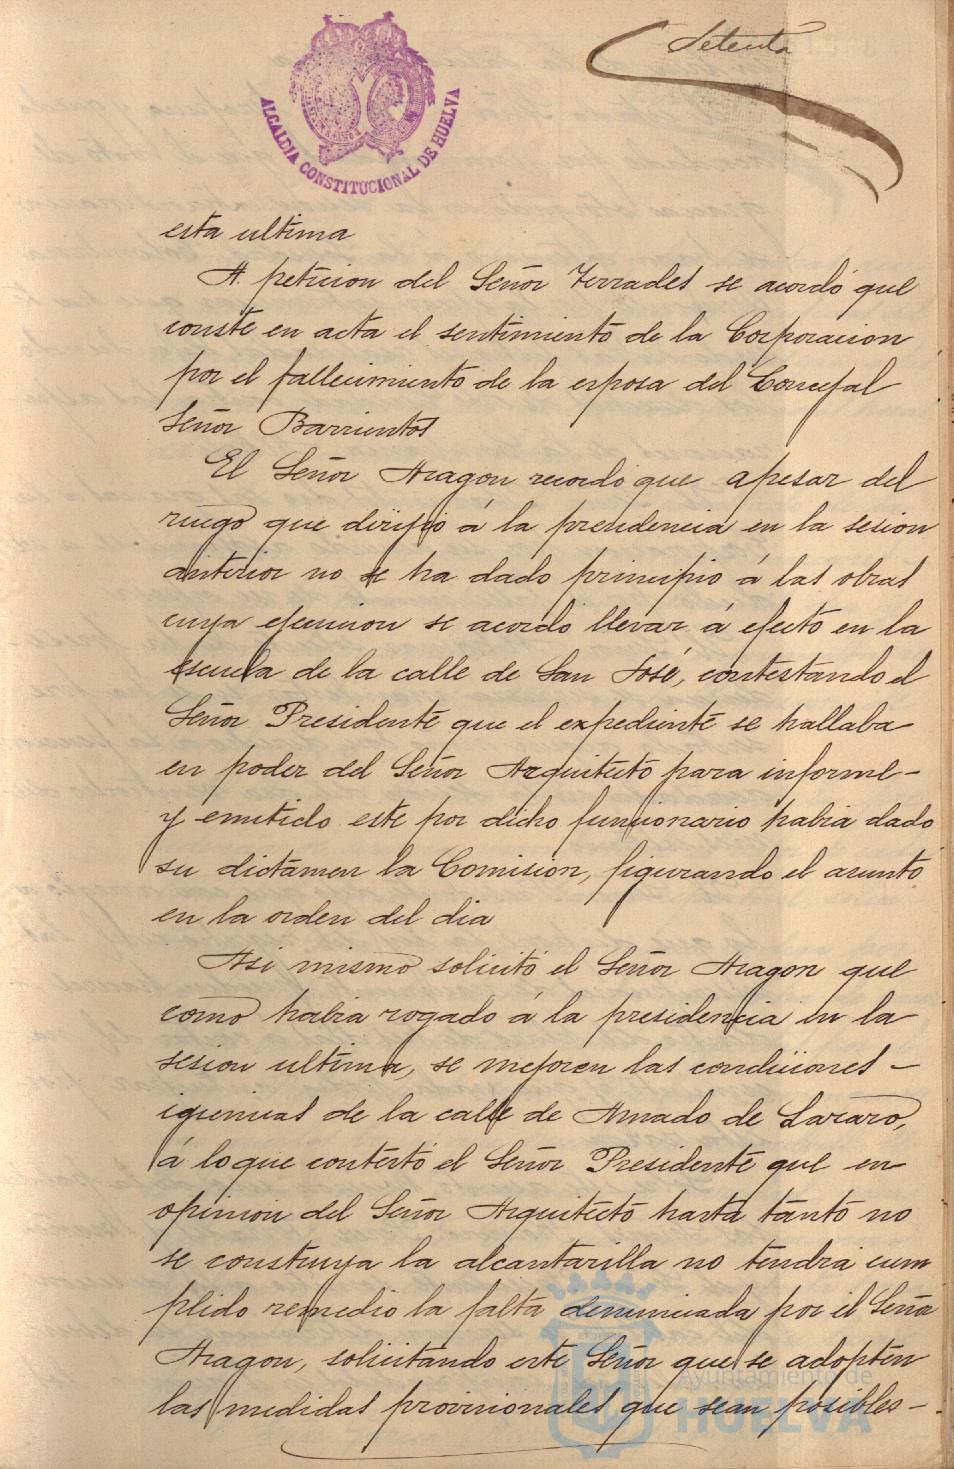 Setenta
ALCALDIA CONSTITUCIONAL DE HUELVA
esta ultima
A peticion del Señor Terrades se acordó que
conste en acta el sentimiento de la Corporacion
por el fallecimiento de la esposa del Concejal
Señor Barrientos
El Señor Aragon recordó que apesar del
ruego que dirijió á la presidencia en la sesion
anterior no se ha dado principio á las obras
cuya ejecucion se acordó llevar á efecto en la
escuela de la calle de San José, contestando el
Señor Presidente que el expediente se hallaba
en poder del Señor Arquitecto para informe-
y emitido este por dicho funcionario habia dado
su dictamen la Comision, figurando el asunto
en la orden del dia
Asi mismo solicitó el Señor Aragon que
como habia rogado á la presidencia en la
sesion ultima, se mejoren las condiciones-
igienicas de la calle de Amado de Lazaro,
á lo que contestó el Señor Presidente que en
opinion del Señor Arquitecto hasta tanto no
se construya la alcantarilla no tendrá cum
plido remedio la falta denunciada por el Señor
Aragon, solicitando este Señor que se adopten
las medidas provisionales que sean posibles-
Ayuntamiento de
HUELVA